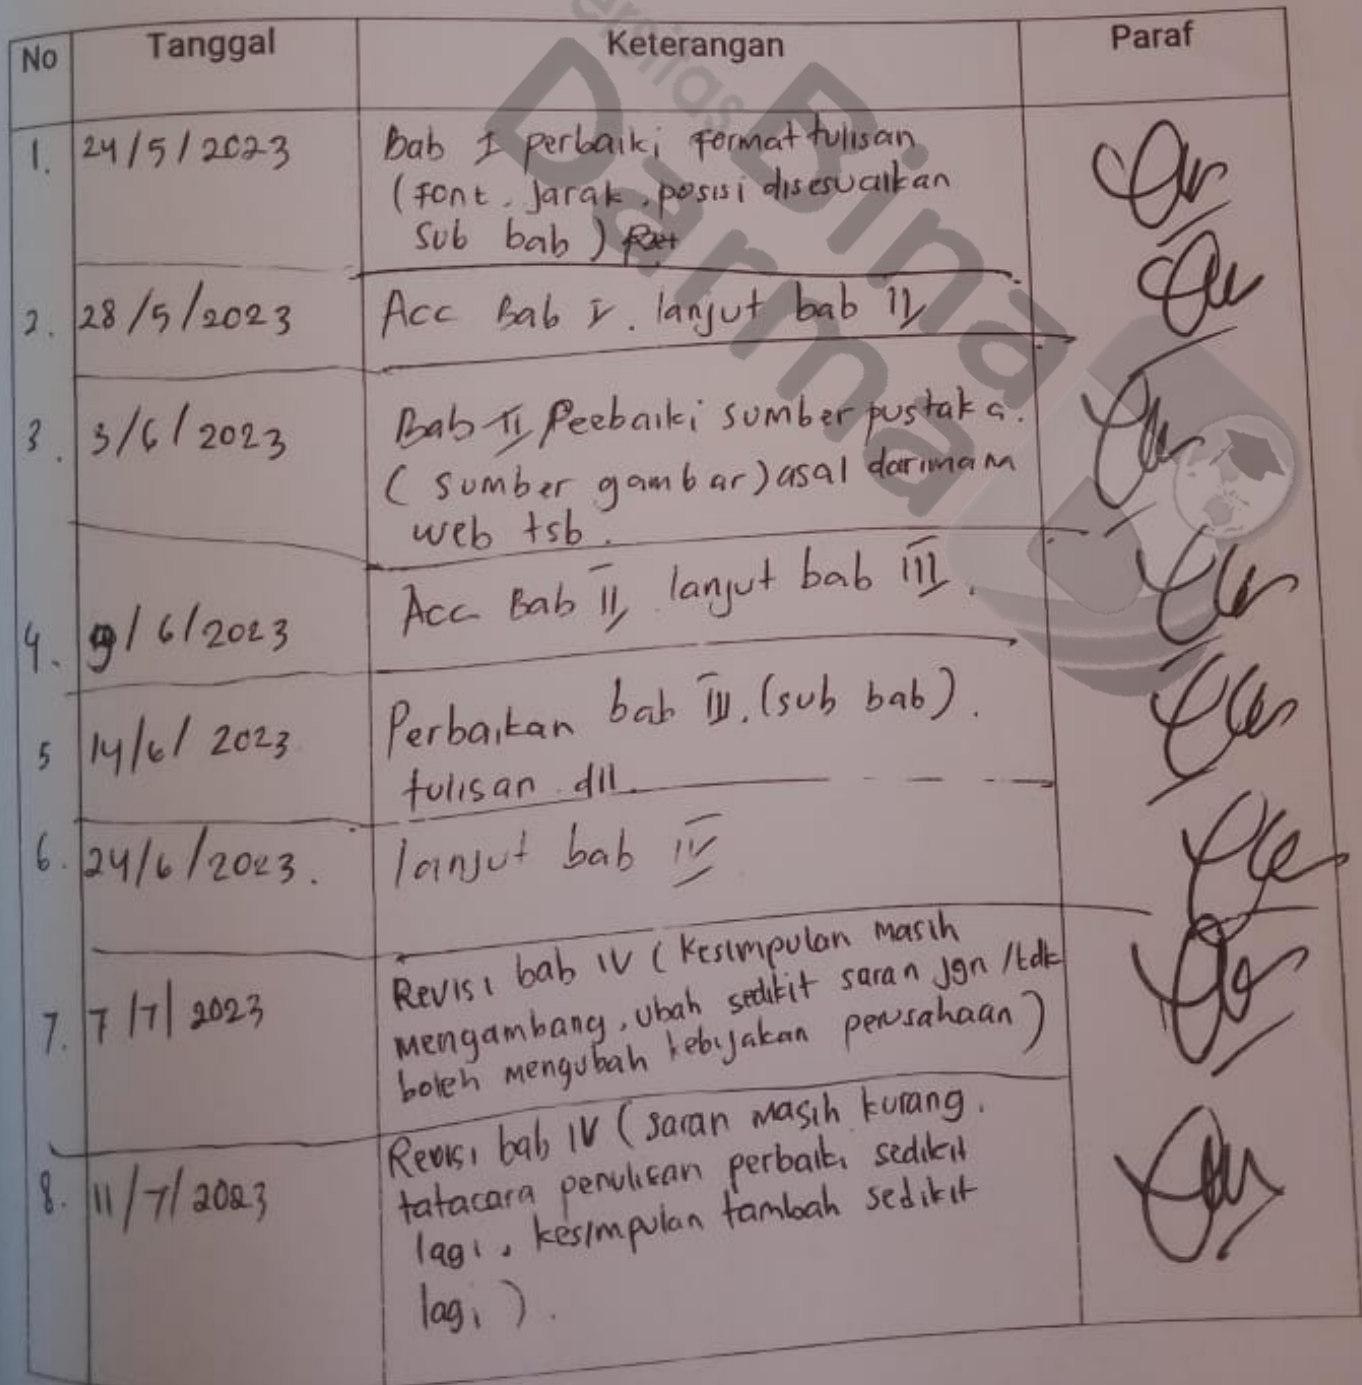 Universitas
Bina
Darma
No Tanggal Keterangan Paraf
1. 24/5/2023 Bab I perbaiki format tulisan
(font, jarak, posisi disesuaikan
sub bab)
2. 28/5/2023 Acc Bab I. lanjut bab II
3. 3/6/2023 Bab II Peebaiki sumber pustaka.
(sumber gambar) asal darimana
web tsb.
4. 9/6/2023 Acc Bab II, lanjut bab III.
5 14/6/2023 Perbaikan bab III. (sub bab).
tulisan dll.
6. 24/6/2023. lanjut bab IV
7. 7/7/2023 Revisi bab IV (kesimpulan masih
mengambang, ubah sedikit saran jgn/tdk
boleh mengubah kebijakan perusahaan)
8. 11/7/2023 Revisi bab IV (saran masih kurang.
tatacara penulisan perbaiki sedikit
lagi, kesimpulan tambah sedikit
lagi).